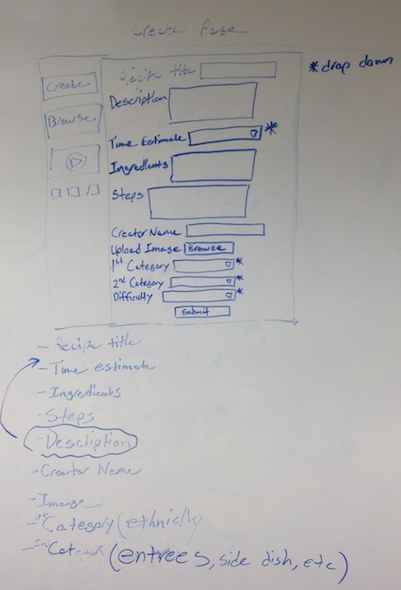 Create Page
*drop down
Create
Browse
Recipe title
Description
Time Estimate *
Ingredients
Steps
Creator Name
Upload Image Browse
1st Category *
2nd Category *
Difficulty *
Submit
- Recipe title
- Time estimate
- Ingredients
- Steps
- Description
- Creator Name
- Image
- 1st Category (ethnicity
- 2nd Category (entrees, side dish, etc)